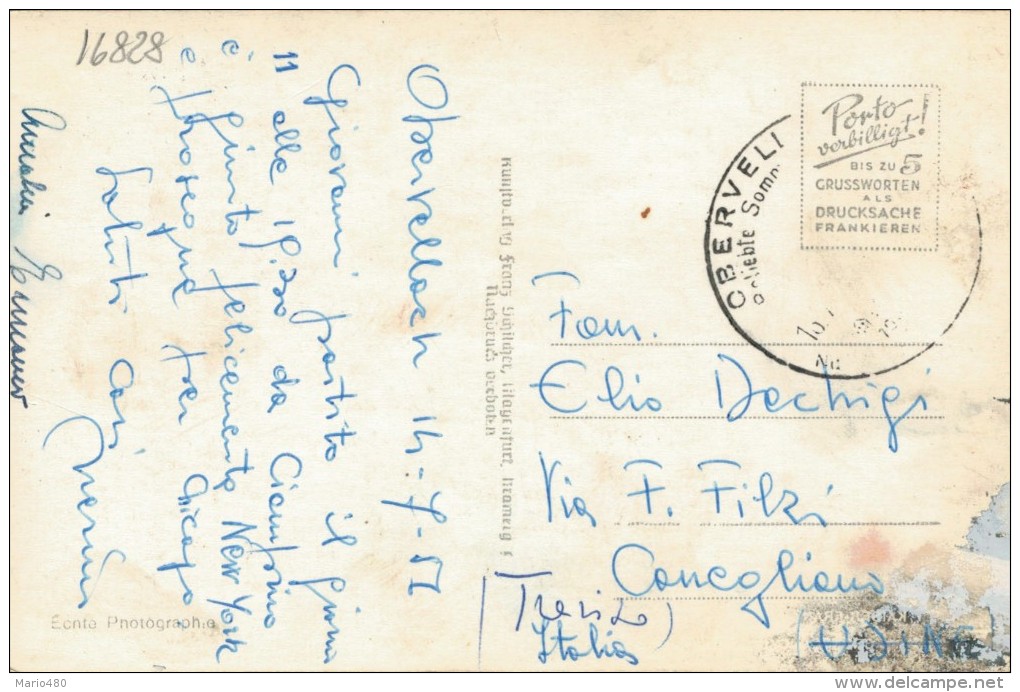 16828
Obervellach 14-7-57
Giovanni partito il giorno
11 alle 19.30 da Ciampino
è giunto felicemente New York
e prosegue per Chicago
Saluti cari
Echte Photographie
Franz Schilcher, Klagenfurt,
Nachdruck verboten
Porto
verbilligt!
BIS ZU 5
GRUSSWORTEN
ALS
DRUCKSACHE
FRANKIEREN
OBERVELL
beliebte Somm
Fam.
Elio Dechigi
Via F. Filzi
Conegliano
(UDINE)
(Treviso)
Italia
Mario480
delcampe.net